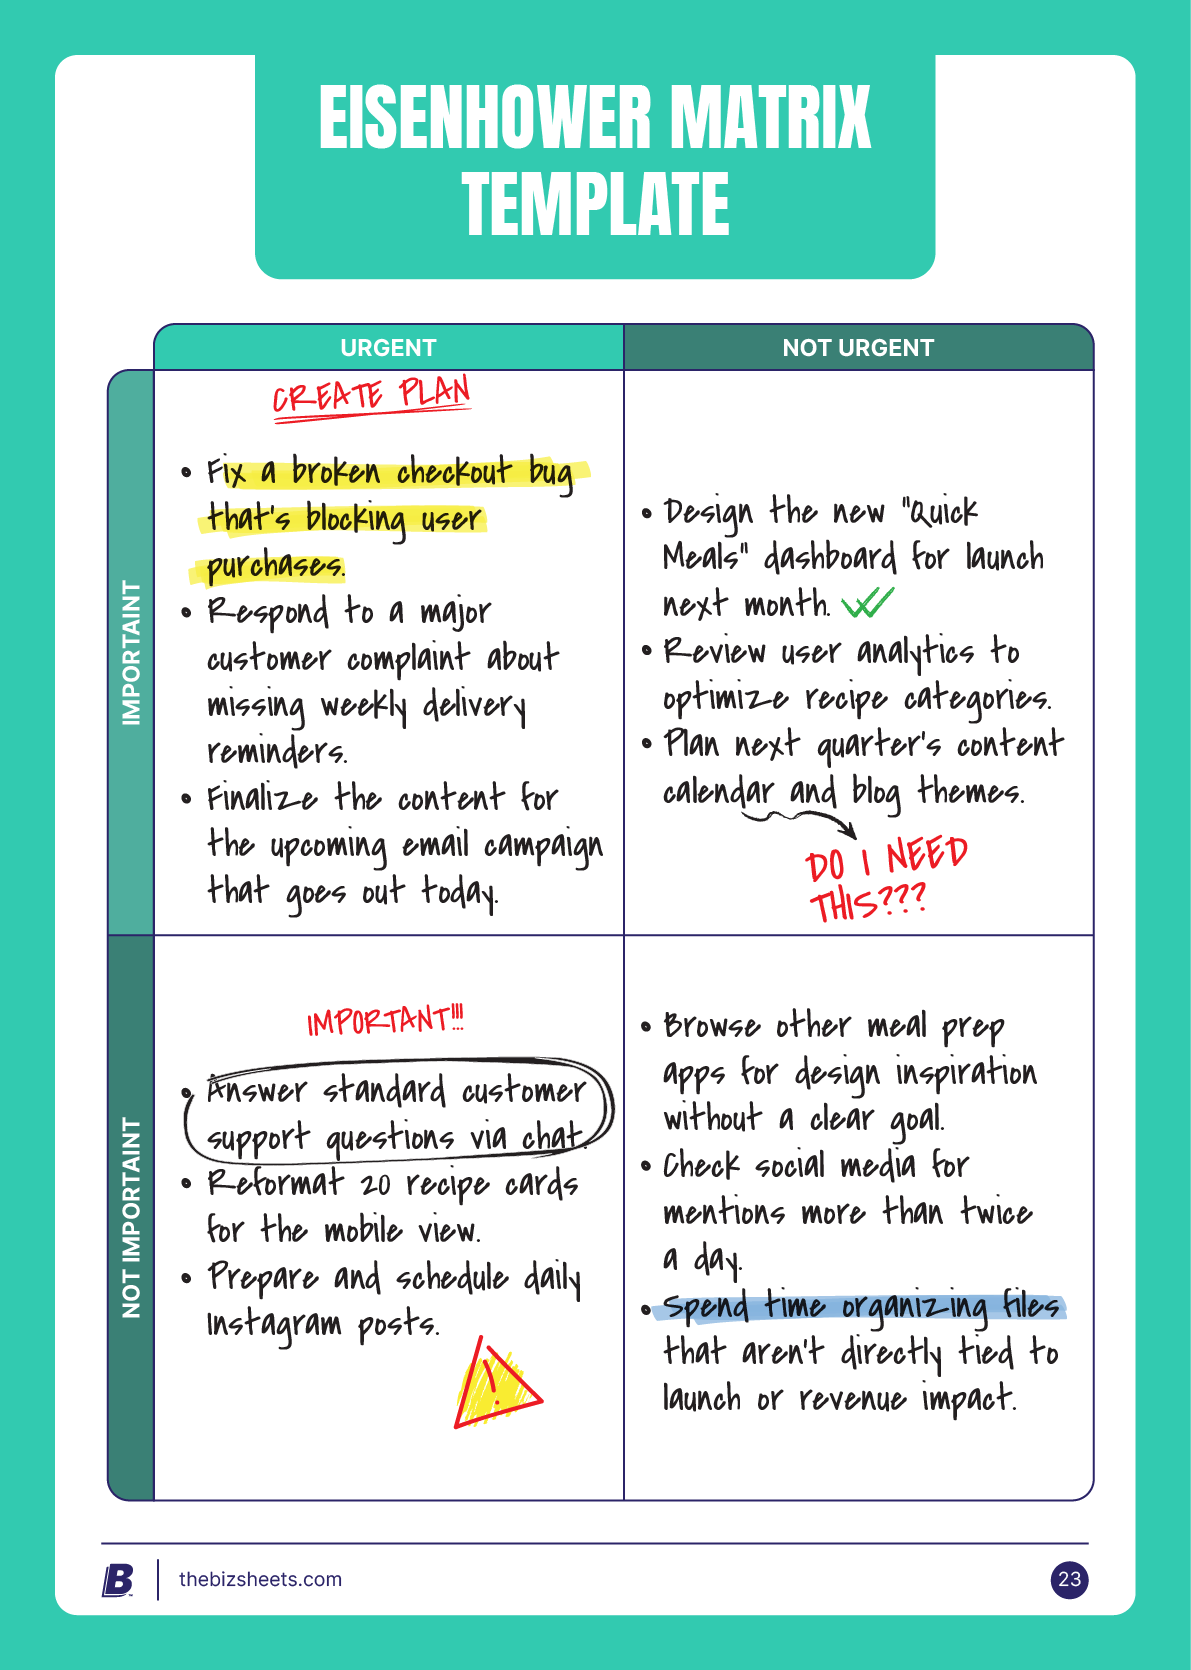 EISENHOWER MATRIX
TEMPLATE
URGENT
NOT URGENT
IMPORTAINT
CREATE PLAN
• Fix a broken checkout bug
that's blocking user
purchases.
• Respond to a major
customer complaint about
missing weekly delivery
reminders.
• Finalize the content for
the upcoming email campaign
that goes out today.
• Design the new "Quick
Meals" dashboard for launch
next month.
• Review user analytics to
optimize recipe categories.
• Plan next quarter's content
calendar and blog themes.
DO I NEED
THIS???
NOT IMPORTAINT
IMPORTANT!!!
• Answer standard customer
support questions via chat.
• Reformat 20 recipe cards
for the mobile view.
• Prepare and schedule daily
Instagram posts.
!
• Browse other meal prep
apps for design inspiration
without a clear goal.
• Check social media for
mentions more than twice
a day.
• Spend time organizing files
that aren't directly tied to
launch or revenue impact.
B
thebizsheets.com
23